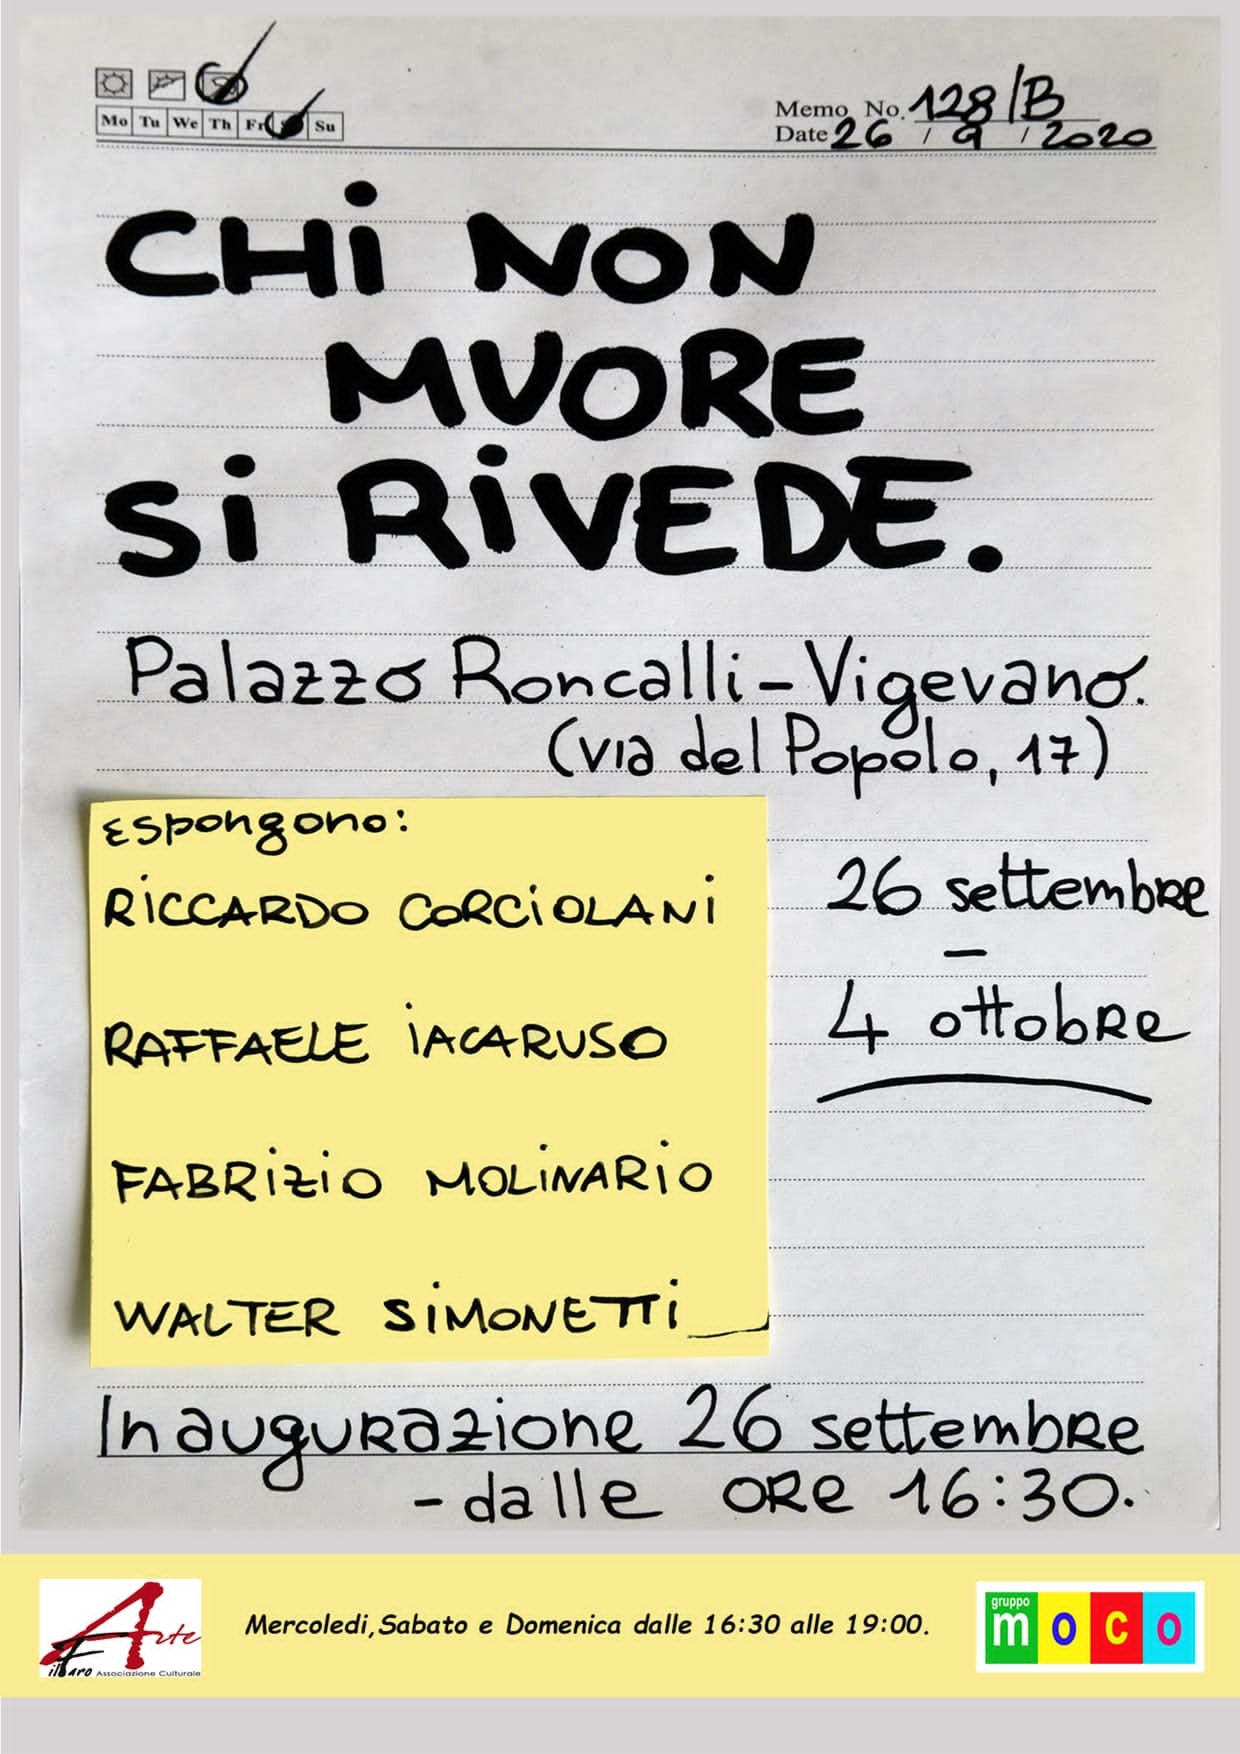 Mo Tu We Th Fr Su
Memo No. 128/B
Date 26 / 9 / 2020
CHi NON
MUORE
Si RiVEDE.
Palazzo Roncalli - Vigevano.
(via del Popolo, 17)
Espongono:
RiCCARDO CORCiOLANi
RAFFAELE iACARUSO
FABRiZiO MOLiNARiO
WALTER SiMONETTi
26 settembre
-
4 ottobre
Inaugurazione 26 settembre
- dalle ore 16:30.
Arte
il Faro Associazione Culturale
Mercoledi,Sabato e Domenica dalle 16:30 alle 19:00.
gruppo
moco